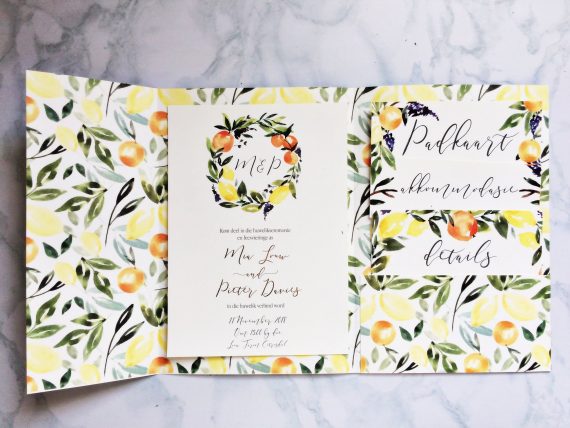 M&P
Kom deel in die huweliksseremonie
en feesvieringe as
Mia Louw
and
Pieter Davies
in die huwelik verbind word
11 November 2018
Padkaart
akkommodasie
details